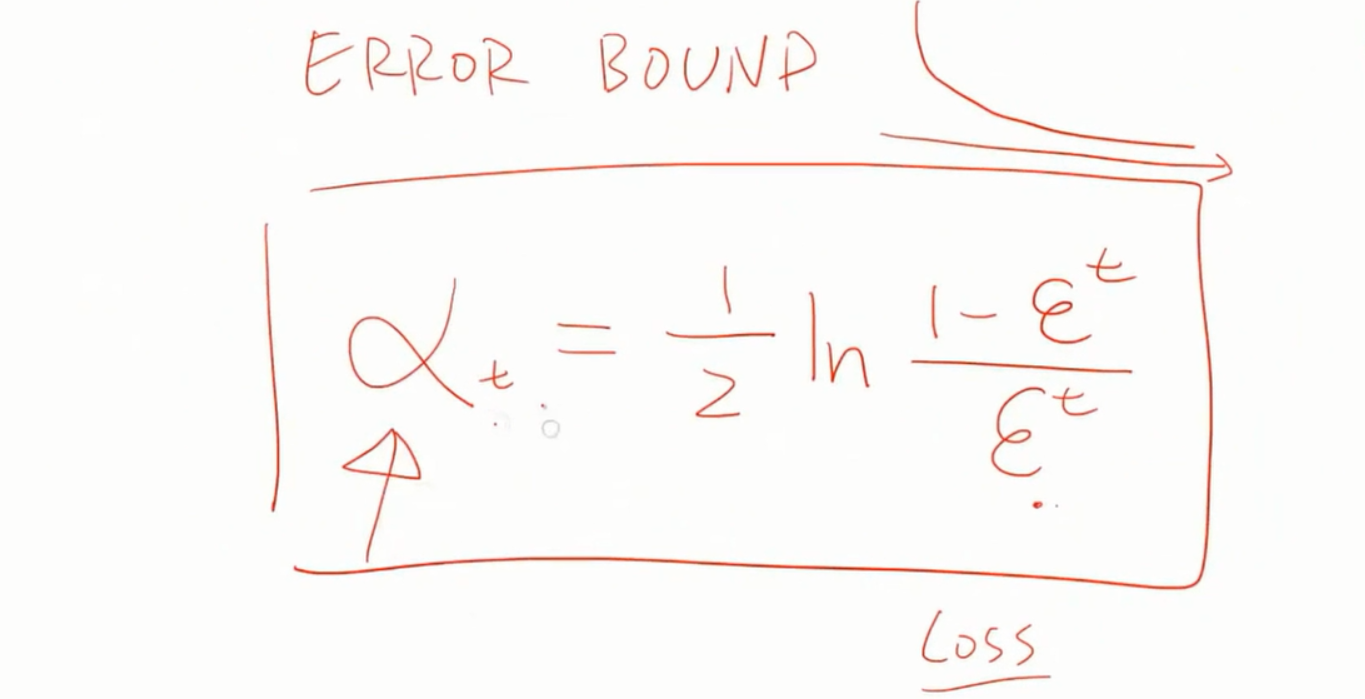 ERROR BOUND
αₜ = 1/2 ln (1 - εᵗ)/εᵗ
Loss